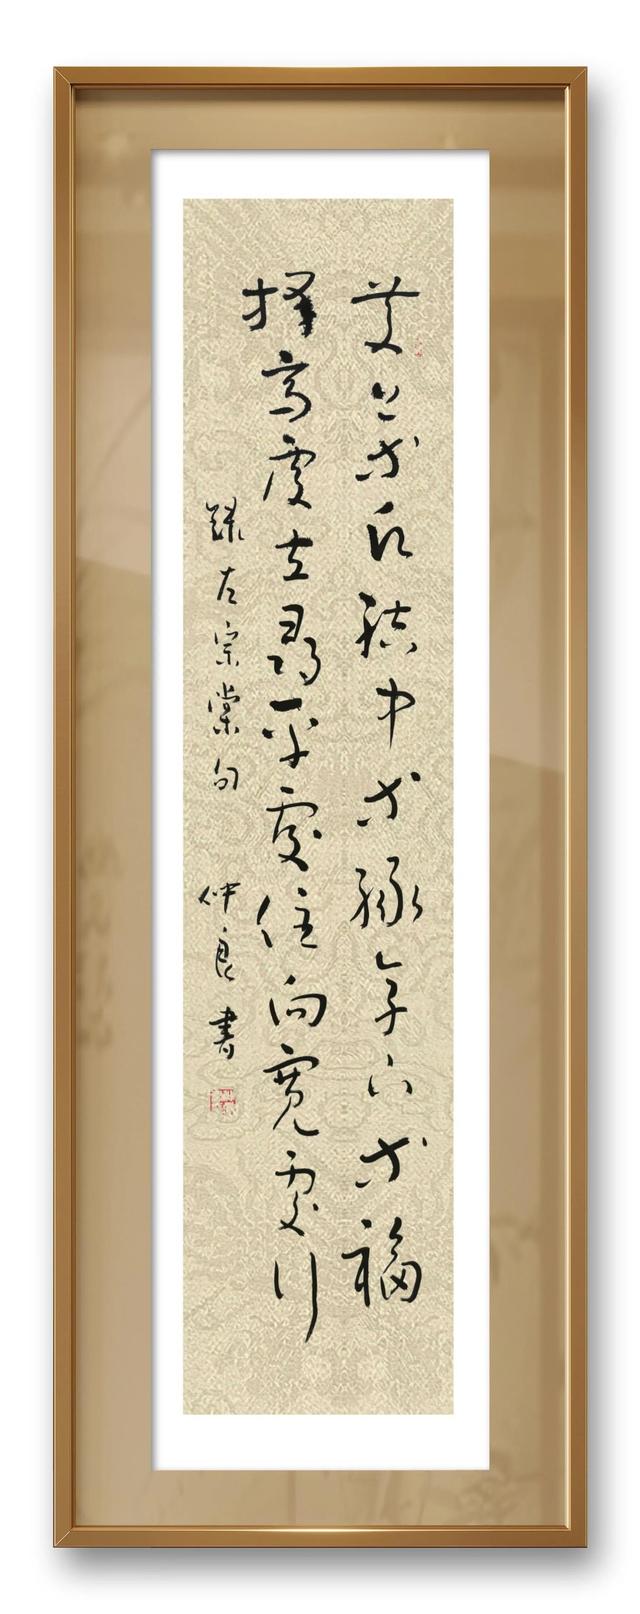 發上等願結中等緣享下等福
擇高處立尋平處住向寬處行
錄左宗棠句 仲良書